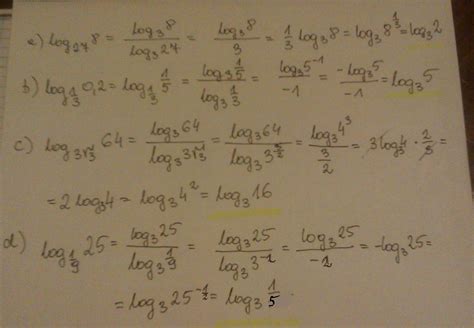 a) log₂₇ 8 = log₃8 / log₃27 = log₃8 / 3 = 1/3 log₃8 = log₃8^(1/3) = log₃2
b) log_(1/3) 0,2 = log_(1/3) 1/5 = log₃ 1/5 / log₃ 1/3 = log₃5⁻¹ / -1 = -log₃5 / -1 = log₃5
c) log_(3√3) 64 = log₃64 / log₃3√3 = log₃64 / log₃3^(3/2) = log₃4³ / (3/2) = 3log₃4 · 2/3 =
= 2log₃4 = log₃4² = log₃16
d) log_(1/9) 25 = log₃25 / log₃ 1/9 = log₃25 / log₃3⁻² = log₃25 / -2 = -log₃25 =
= log₃25^(-1/2) = log₃ 1/5